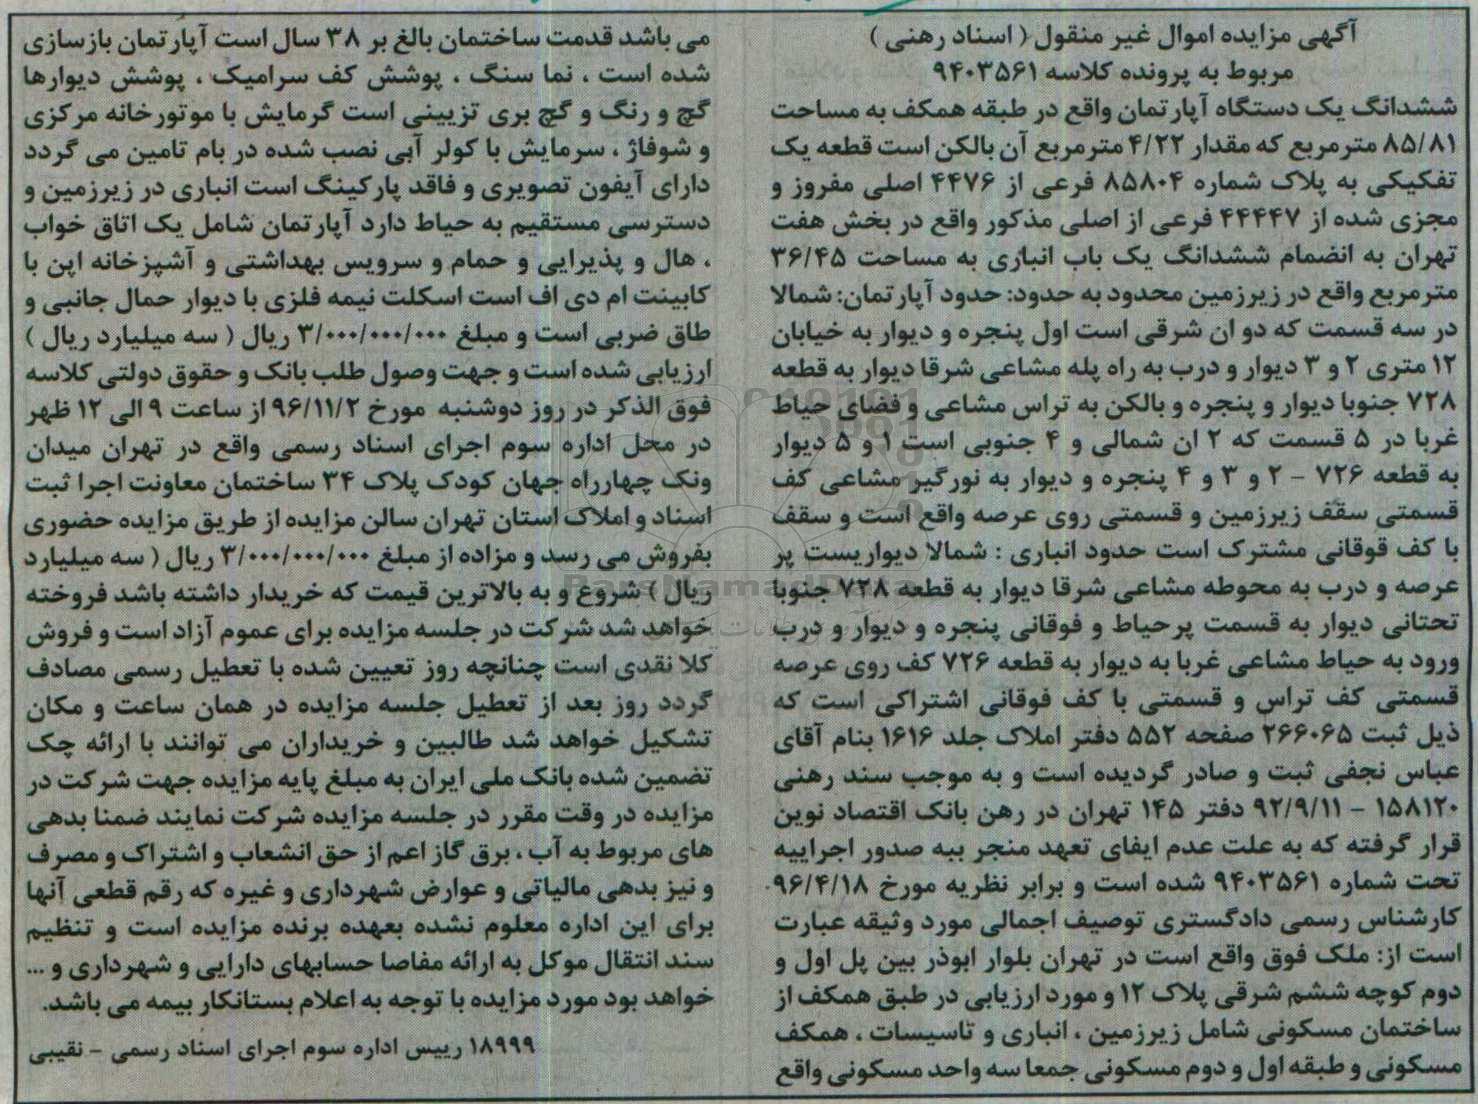 آگهی مزایده اموال غیر منقول ( اسناد رهنی )
مربوط به پرونده کلاسه ۹۴۰۳۵۶۱
ششدانگ یک دستگاه آپارتمان واقع در طبقه همکف به مساحت
۸۵/۸۱ مترمربع که مقدار ۴/۲۲ مترمربع آن بالکن است قطعه یک
تفکیکی به پلاک شماره ۸۵۸۰۴ فرعی از ۴۴۷۶ اصلی مفروز و
مجزی شده از ۴۴۴۴۷ فرعی از اصلی مذکور واقع در بخش هفت
تهران به انضمام ششدانگ یک باب انباری به مساحت ۳۶/۴۵
مترمربع واقع در زیرزمین محدود به حدود: حدود آپارتمان: شمالا
در سه قسمت که دو ان شرقی است اول پنجره و دیوار به خیابان
۱۲ متری ۲ و ۳ دیوار و درب به راه پله مشاعی شرقا دیوار به قطعه
۷۲۸ جنوبا دیوار و پنجره و بالکن به تراس مشاعی و فضای حیاط
غربا در ۵ قسمت که ۲ ان شمالی و ۴ جنوبی است ۱ و ۵ دیوار
به قطعه ۷۲۶ - ۲ و ۳ و ۴ پنجره و دیوار به نورگیر مشاعی کف
قسمتی سقف زیرزمین و قسمتی روی عرصه واقع است و سقف
با کف قوقانی مشترک است حدود انباری : شمالا دیواریست پر
عرصه و درب به محوطه مشاعی شرقا دیوار به قطعه ۷۲۸ جنوبا
تحتانی دیوار به قسمت پرحیاط و فوقانی پنجره و دیوار و درب
ورود به حیاط مشاعی غربا به دیوار به قطعه ۷۲۶ کف روی عرصه
قسمتی کف تراس و قسمتی با کف فوقانی اشتراکی است که
ذیل ثبت ۲۶۶۰۶۵ صفحه ۵۵۲ دفتر املاک جلد ۱۶۱۶ بنام آقای
عباس نجفی ثبت و صادر گردیده است و به موجب سند رهنی
۱۵۸۱۲۰ - ۹۲/۹/۱۱ دفتر ۱۴۵ تهران در رهن بانک اقتصاد نوین
قرار گرفته که به علت عدم ایفای تعهد منجر ببه صدور اجراییه
تحت شماره ۹۴۰۳۵۶۱ شده است و برابر نظریه مورخ ۹۶/۴/۱۸.
کارشناس رسمی دادگستری توصیف اجمالی مورد وثیقه عبارت
است از: ملک فوق واقع است در تهران بلوار ابوذر بین پل اول و
دوم کوچه ششم شرقی پلاک ۱۲ و مورد ارزیابی در طبق همکف از
ساختمان مسکونی شامل زیرزمین ، انباری و تاسیسات ، همکف
مسکونی و طبقه اول و دوم مسکونی جمعا سه واحد مسکونی واقع
می باشد قدمت ساختمان بالغ بر ۳۸ سال است آپارتمان بازسازی
شده است ، نما سنگ ، پوشش کف سرامیک ، پوشش دیوارها
گچ و رنگ و گچ بری تزیینی است گرمایش با موتورخانه مرکزی
و شوفاژ ، سرمایش با کولر آبی نصب شده در بام تامین می گردد
دارای آیفون تصویری و فاقد پارکینگ است انباری در زیرزمین و
دسترسی مستقیم به حیاط دارد آپارتمان شامل یک اتاق خواب
، هال و پذیرایی و حمام و سرویس بهداشتی و آشپزخانه اپن با
کابینت ام دی اف است اسکلت نیمه فلزی با دیوار حمال جانبی و
طاق ضربی است و مبلغ ۳/۰۰۰/۰۰۰/۰۰۰ ریال ( سه میلیارد ریال )
ارزیابی شده است و جهت وصول طلب بانک و حقوق دولتی کلاسه
فوق الذکر در روز دوشنبه مورخ ۹۶/۱۱/۲ از ساعت ۹ الی ۱۲ ظهر
در محل اداره سوم اجرای اسناد رسمی واقع در تهران میدان
ونک چهارراه جهان کودک پلاک ۳۴ ساختمان معاونت اجرا ثبت
اسناد و املاک استان تهران سالن مزایده از طریق مزایده حضوری
بفروش می رسد و مزاده از مبلغ ۳/۰۰۰/۰۰۰/۰۰۰ ریال ( سه میلیارد
ریال ) شروع و به بالاترین قیمت که خریدار داشته باشد فروخته
خواهد شد شرکت در جلسه مزایده برای عموم آزاد است و فروش
کلا نقدی است چنانچه روز تعیین شده با تعطیل رسمی مصادف
گردد روز بعد از تعطیل جلسه مزایده در همان ساعت و مکان
تشکیل خواهد شد طالبین و خریداران می توانند با ارائه چک
تضمین شده بانک ملی ایران به مبلغ پایه مزایده جهت شرکت در
مزایده در وقت مقرر در جلسه مزایده شرکت نمایند ضمنا بدهی
های مربوط به آب ، برق گاز اعم از حق انشعاب و اشتراک و مصرف
و نیز بدهی مالیاتی و عوارض شهرداری و غیره که رقم قطعی آنها
برای این اداره معلوم نشده بعهده برنده مزایده است و تنظیم
سند انتقال موکل به ارائه مفاصا حسابهای دارایی و شهرداری و ...
خواهد بود مورد مزایده با توجه به اعلام بستانکار بیمه می باشد.
۱۸۹۹۹ رییس اداره سوم اجرای اسناد رسمی - نقیبی
ParsNamadData